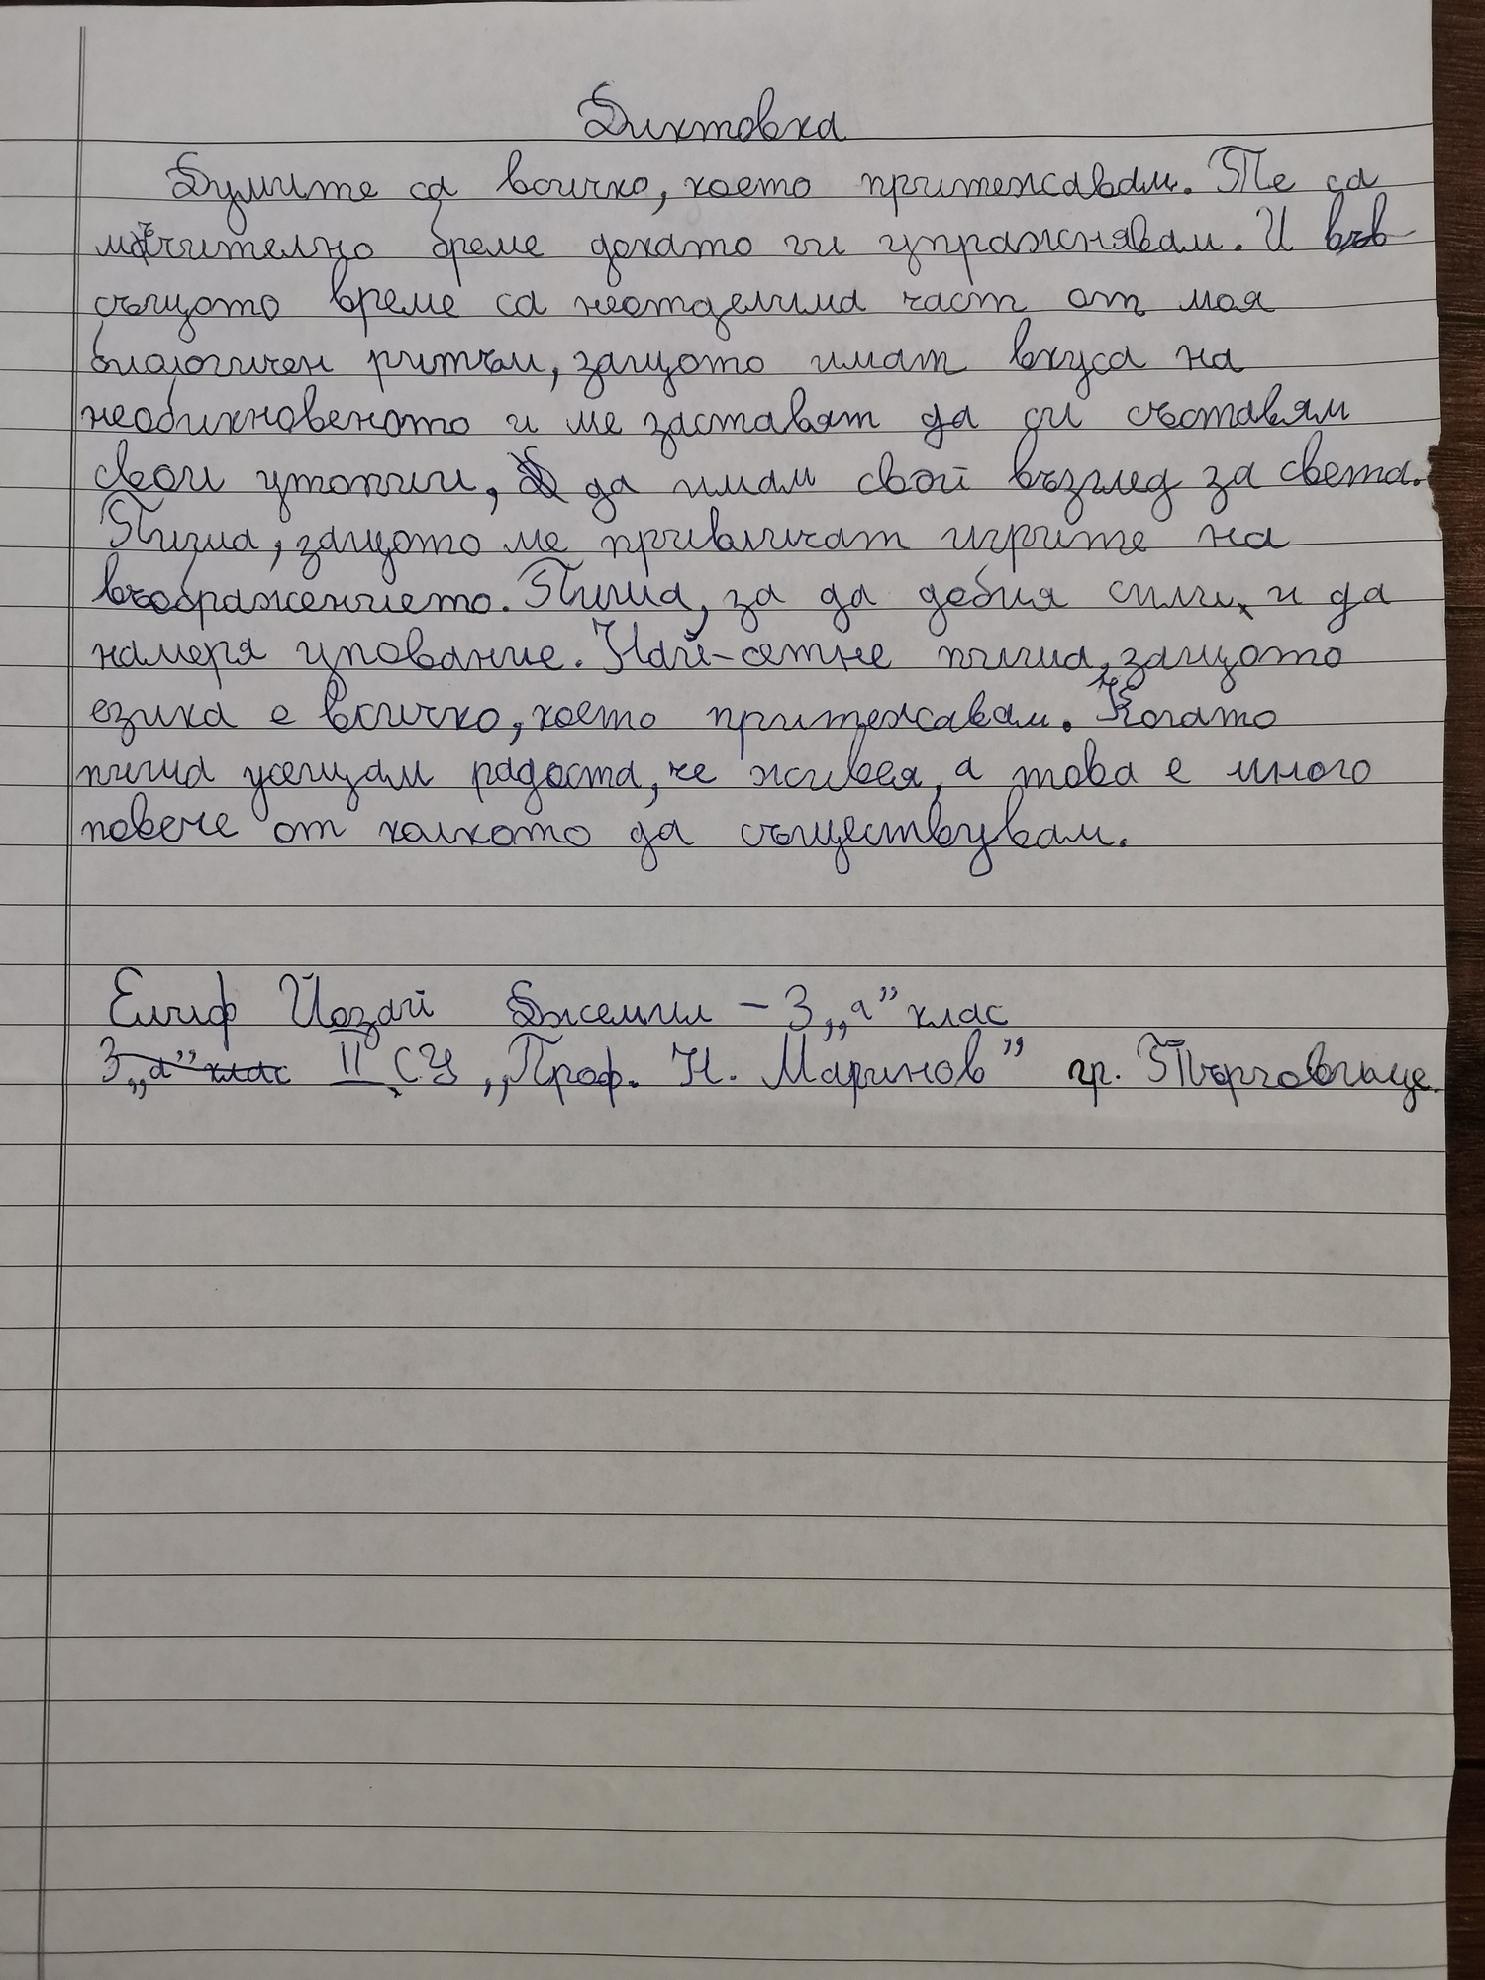 Диктовка
Думите са всичко, което притежавам. Те са
мъчително бреме докато ги упражнявам. И във
същото време са неотделима част от моя
биологичен ритъм, защото имат вкуса на
необикновеното и ме заставят да си съставям
свои утопии, да имам свой възглед за света.
Пиша, защото ме привличат игрите на
въображението. Пиша, за да добия сили, и да
намеря упование. Най-сетне пиша, защото
езика е всичко, което притежавам. Когато
пиша усещам радоста, че живея, а това е много
повече от колкото да съществувам.
Елиф Йозай Джемил - 3 „а" клас
3 „а" клас II СУ „Проф. Н. Маринов" гр. Търговище.